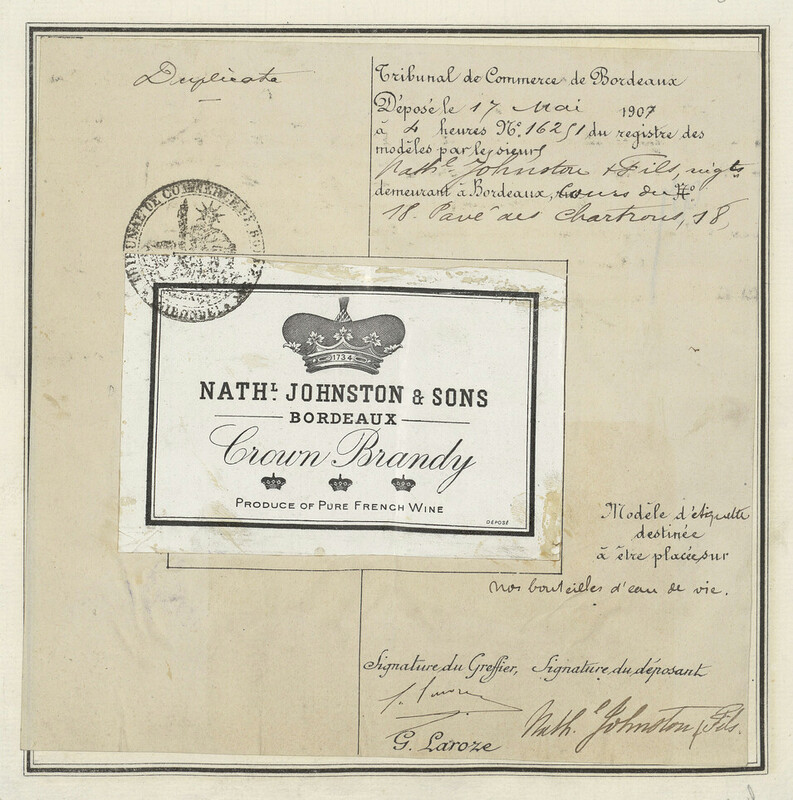 Duplicata
Tribunal de Commerce de Bordeaux
Déposé le 17 Mai 1907
à 4 heures No. 16251 du registre des
modèles par les sieurs
Nathl. Johnston & Fils, negts
demeurant à Bordeaux, Cours du No
18. Pavé des Chartrons, 18,
TRIBUNAL DE COMMERCE DE BORDEAUX
GIRONDE
1734
NATHL. JOHNSTON & SONS
BORDEAUX
Crown Brandy
PRODUCE OF PURE FRENCH WINE
DÉPOSÉ
Modèle d'étiquette
destinée
à être placée sur
nos bouteilles d'eau de vie.
Signature du Greffier, Signature du déposant
G. Laroze
Nathl Johnston & Fils.